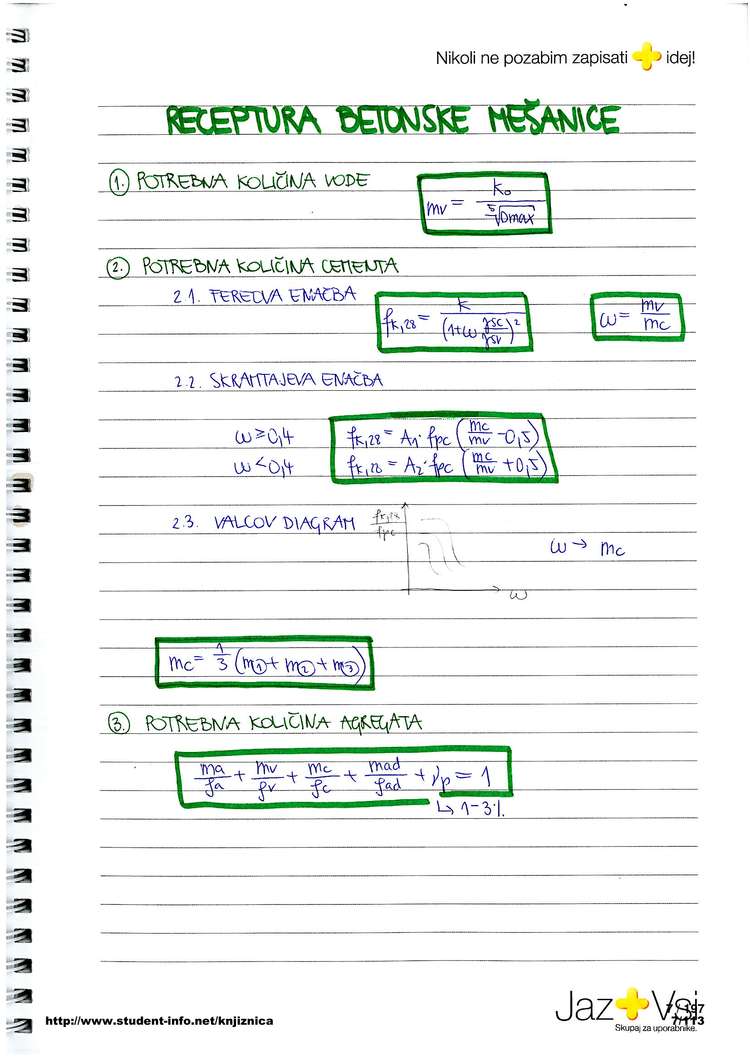 Nikoli ne pozabim zapisati + idej!
RECEPTURA BETONSKE MEŠANICE
1. POTREBNA KOLIČINA VODE
mv = k₀ / ⁵√Dmax
2. POTREBNA KOLIČINA CEMENTA
2.1. FERETVA ENAČBA
fk,28 = k / (1+ω ρsc/ρsv)²
ω = mv/mc
2.2. SKRAMTAJEVA ENAČBA
ω ≥ 0,4 fk,28 = A₁·fpc (mc/mv - 0,5)
ω < 0,4 fk,28 = A₂·fpc (mc/mv + 0,5)
2.3. VALCOV DIAGRAM fk,28/fpc
ω → mc
ω
mc = 1/3 (m① + m② + m③)
3. POTREBNA KOLIČINA AGREGATA
ma/ρa + mv/ρv + mc/ρc + mad/ρad + νp = 1
↳ 1-3%
Jaz + Vsi
http://www.student-info.net/knjiznica
7/113
Skupaj za uporabnike.